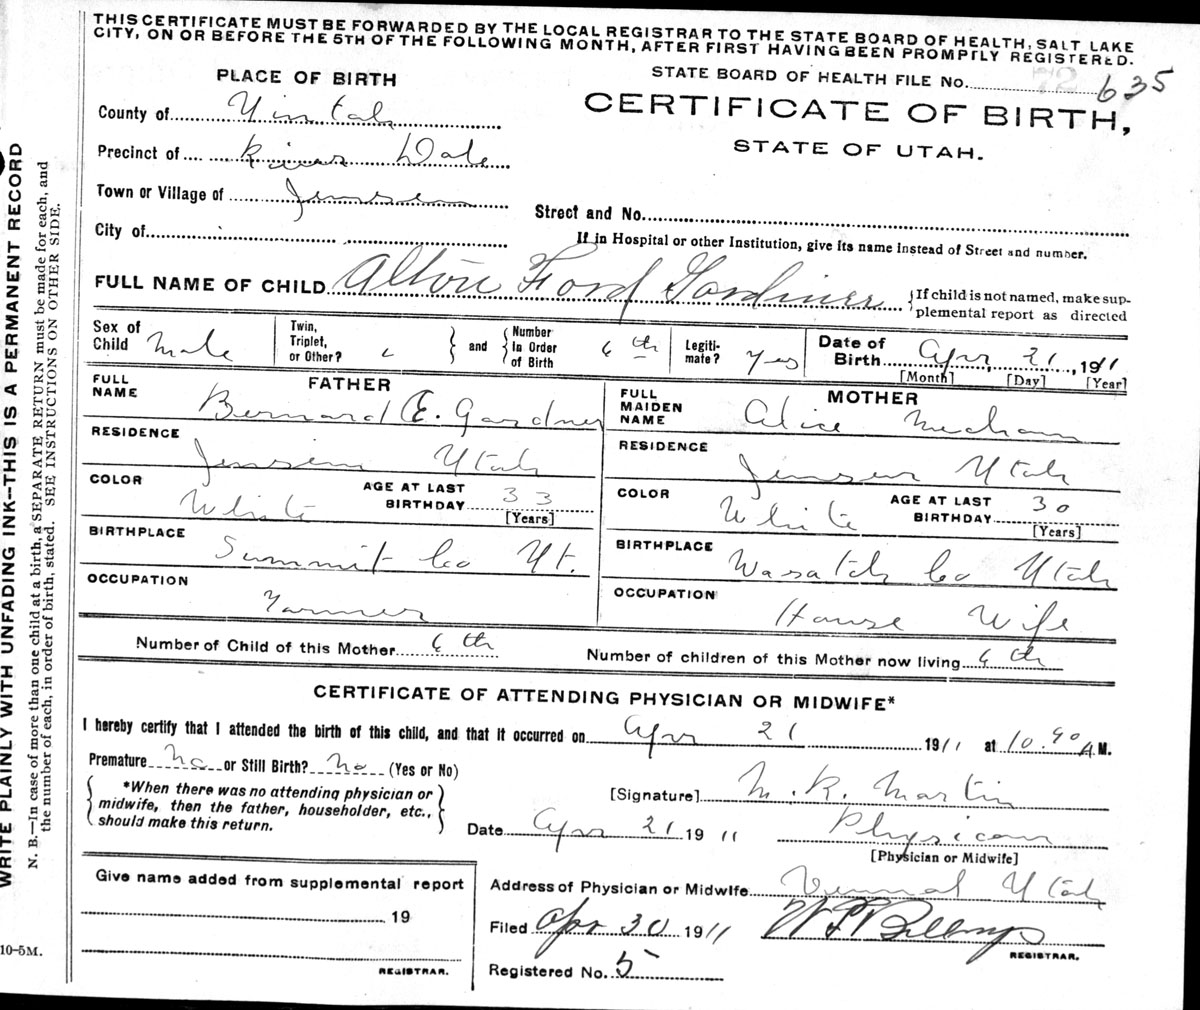 THIS CERTIFICATE MUST BE FORWARDED BY THE LOCAL REGISTRAR TO THE STATE BOARD OF HEALTH, SALT LAKE
CITY, ON OR BEFORE THE 5TH OF THE FOLLOWING MONTH, AFTER FIRST HAVING BEEN PROMPTLY REGISTERED.
PLACE OF BIRTH
STATE BOARD OF HEALTH FILE No. 72 635
County of Uintah
CERTIFICATE OF BIRTH,
Precinct of River Dale
STATE OF UTAH.
Town or Village of Jensen
Street and No.
City of
If in Hospital or other Institution, give its name instead of Street and number.
FULL NAME OF CHILD Alton Ford Gardiner {If child is not named, make sup-
plemental report as directed
Sex of Child Male Twin, Triplet, or Other? } and { Number In Order of Birth 6th Legiti-mate? Yes Date of Birth Apr, 21, 1911
[Month] [Day] [Year]
FATHER
MOTHER
FULL NAME Bernard E. Gardner
FULL MAIDEN NAME Alice Mecham
RESIDENCE Jensen Utah
RESIDENCE Jensen Utah
COLOR White AGE AT LAST BIRTHDAY 33 [Years]
COLOR White AGE AT LAST BIRTHDAY 30 [Years]
BIRTHPLACE Summit Co Ut.
BIRTHPLACE Wasatch Co Utah
OCCUPATION Farmer
OCCUPATION House Wife
Number of Child of this Mother 6th
Number of children of this Mother now living 6th
CERTIFICATE OF ATTENDING PHYSICIAN OR MIDWIFE*
I hereby certify that I attended the birth of this child, and that it occurred on Apr 21 1911 at 10.40 A.M.
Premature No or Still Birth? No (Yes or No)
{ *When there was no attending physician or
midwife, then the father, householder, etc.,
should make this return. }
[Signature] M. K. Martin
Date Apr 21 1911 Physican
[Physician or Midwife]
Give name added from supplemental report
19
REGISTRAR.
Address of Physician or Midwife Vernal Utah
Filed Apr 30 1911 Billings
REGISTRAR.
Registered No. 5
WRITE PLAINLY WITH UNFADING INK--THIS IS A PERMANENT RECORD
N. B.—In case of more than one child at a birth, a SEPARATE RETURN must be made for each, and
the number of each, in order of birth, stated. SEE INSTRUCTIONS ON OTHER SIDE.
10-5M.